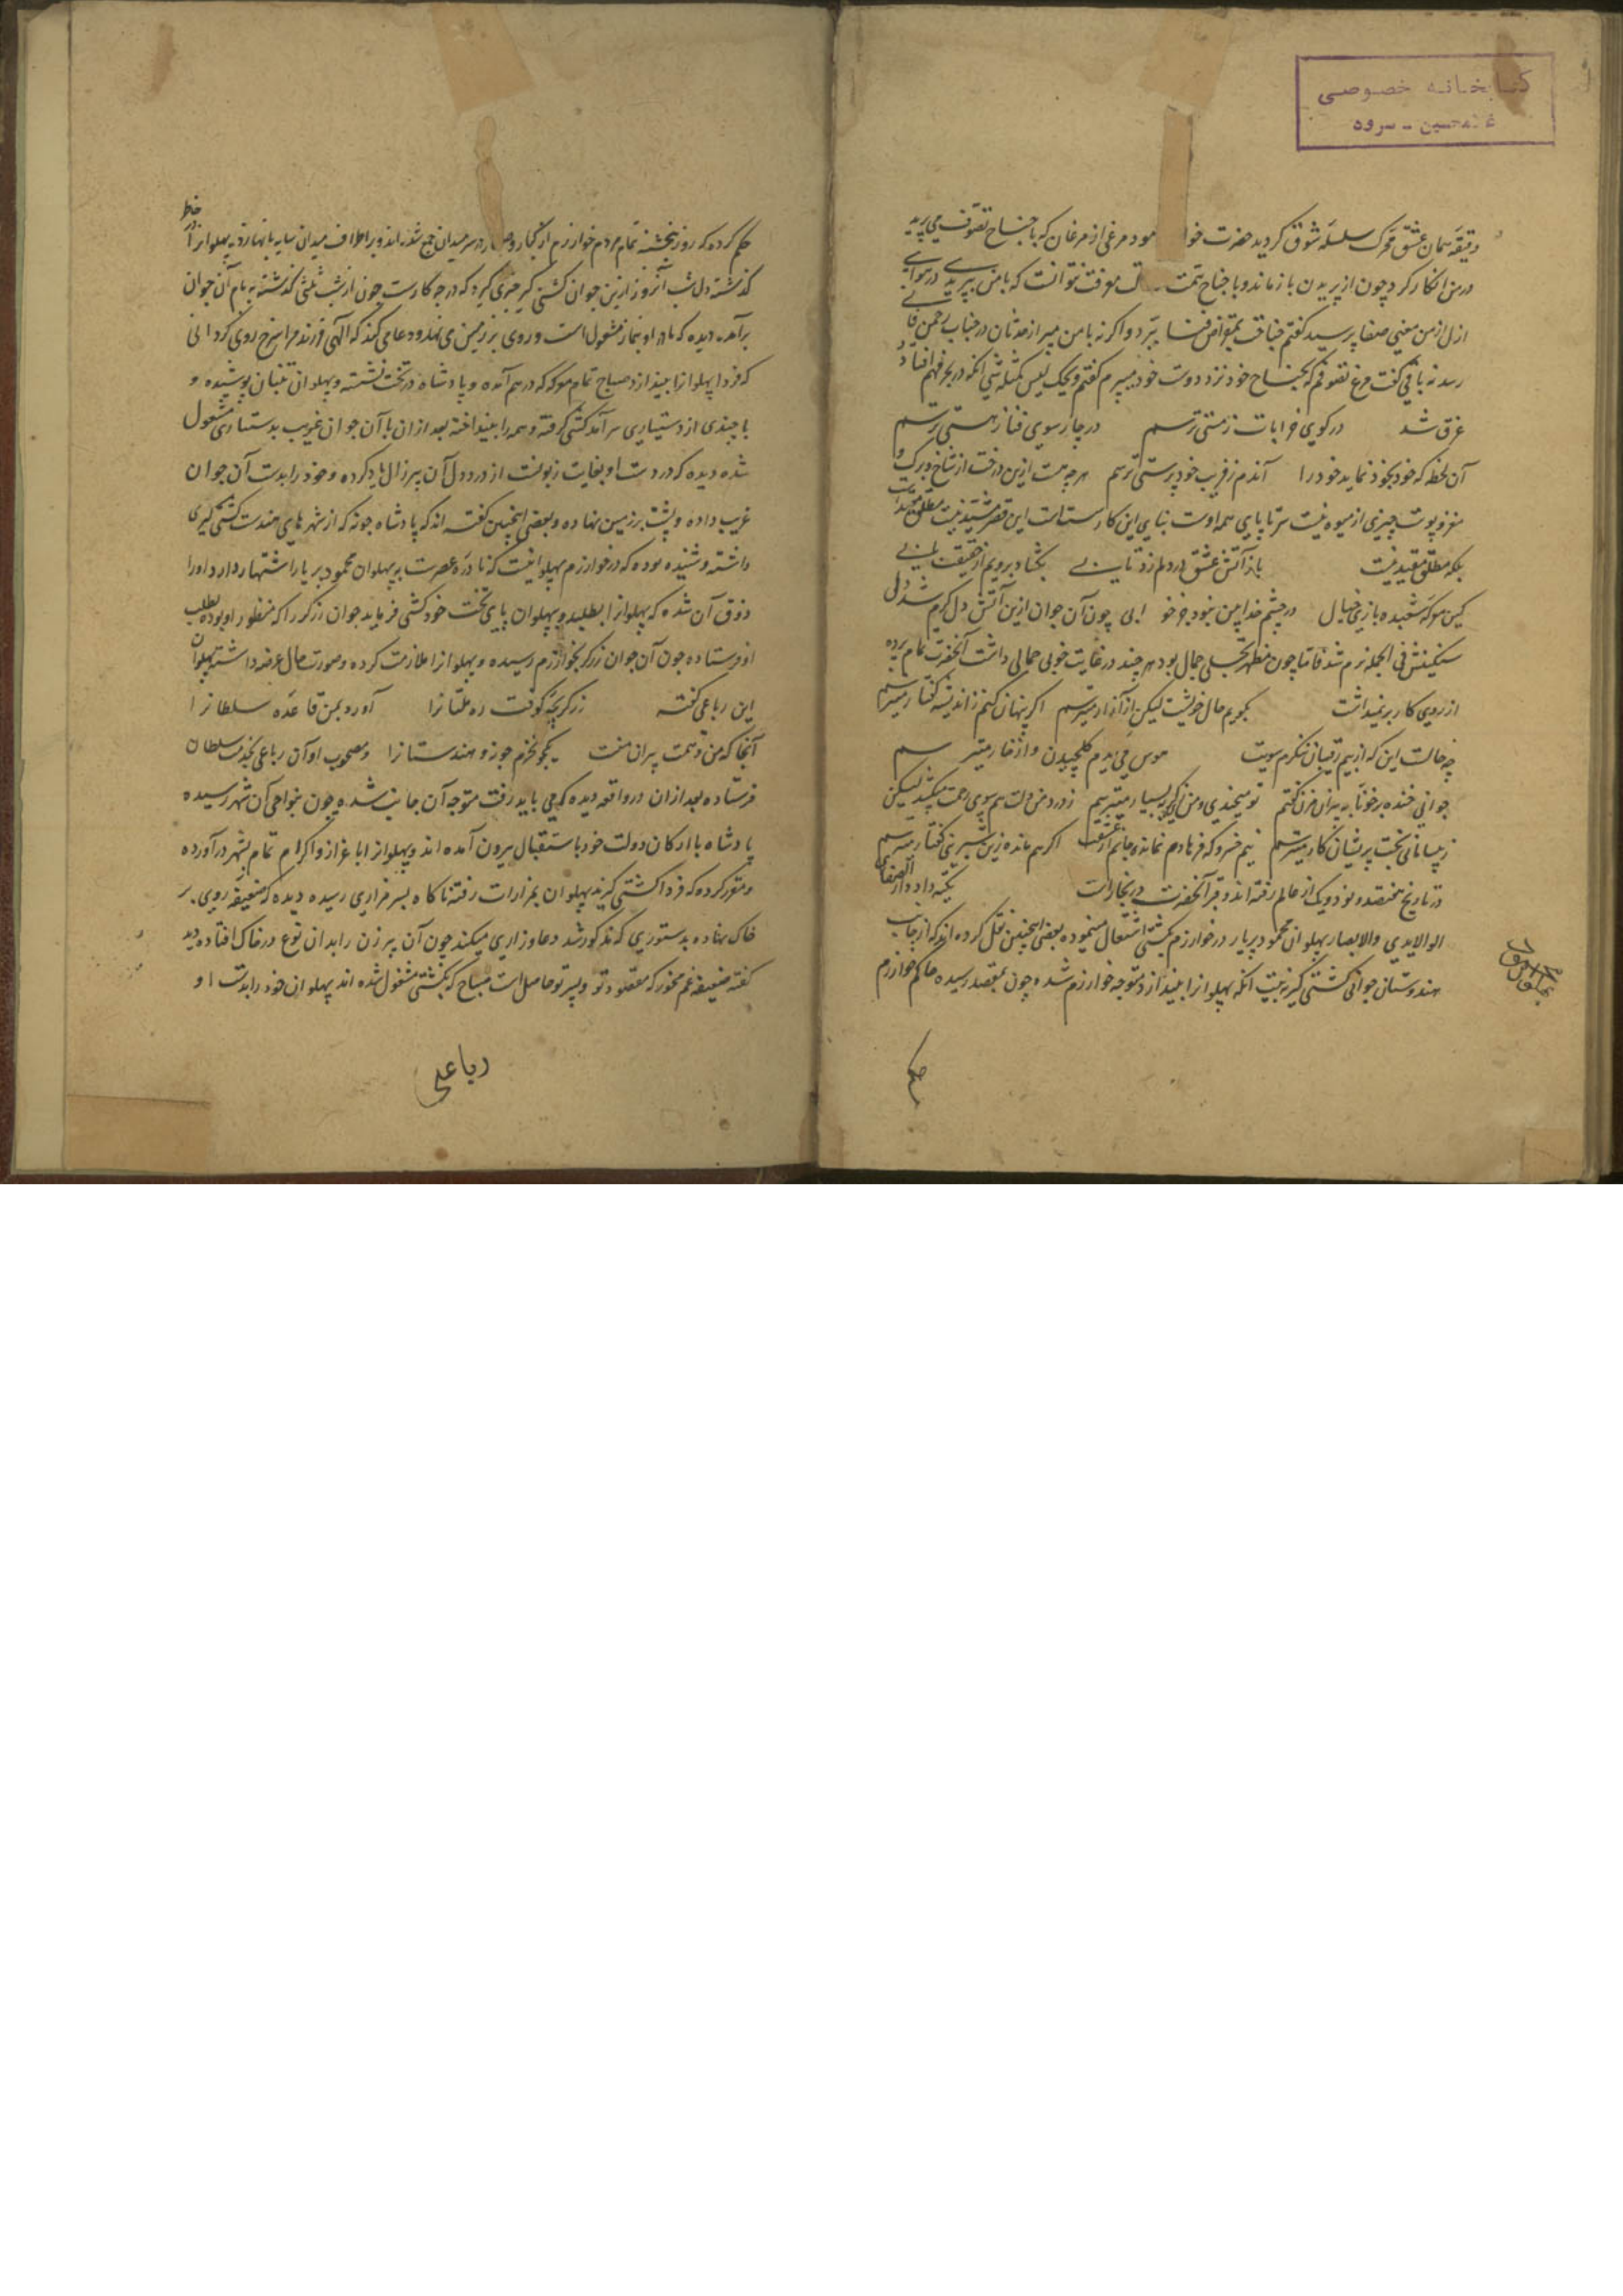 کتابخانه خصوصی
غلامحسین - سرود
دقیقه همان عشق محرک سلسله شوق گردید حضرت خواجه فرمود مرغی از مرغان که با جناح تصوف می پرید
در من انکار کرد چون از پریدن باز ماند و با جناح همت معرفت نتوانست که با من بپرد در هوای
ازل از من معنی صفا پرسید گفتم جناحت بمقراض فنا ببر و اگر نه با من مپر
گفت مرغ تصوفم که بجناح خود نزد دوست خود میپرم گفتم ویحک لیس کمثله شیء آنکه در بحر فهم افتاد و
غرق شد در کوی خرابات ز مستی ترسم در چار سوی فنا ز هستی ترسم
آن لحظه که خود بخود نماید خود را آندم ز فریب خود پرستی ترسم هر چه هست ازین درخت از شاخ و برگ و
مغز و پوست چیزی از میوه نیست سر تا پای همه اوست بنای این کار است این قصر مشید نیست مطلق
بلکه مطلق مقید نیست باز آتش عشق در دلم زد تابی بگشاد برویم از حقیقت بابی
کین معرکه شعبده بازی خیال در چشم خدا بین نبود جز خوابی چون آن جوان ازین آتش دل گرم شد دل
سنگینش فی الجمله نرم شد فاما چون مظهر تجلی جمال بود هر چند در غایت خوبی جمالی داشت آنحضرت تمام پرده
از روی کار بر نمیداشت بگویم حال خویشت لیکن از آزار میترسم اگر پنهان کنم ز اندیشه گفتار میترسم
چه حالت این که از بیم رقیبان ننگرم سویت هوس می میرم گلچیدن و از خار میترسم
جوانی خنده بر خونابه پیران مزن گفتم تو میخندی و من زین گریه بسیار میترسم ز درد من دلت هم سوی رحمت میکشد لیکن
ز بیسامانی بخت پریشان کار میترسم نیم خسرو که فرهادم نمانده جانم از عشقت اگر هم مانده زین شیرینی گفتار میترسم
در تاریخ هفتصد و نود و یک از عالم رفته اند و قبر آنحضرت در بخاراست یکه دادار الصفای
اولو الایدی والابصار پهلوان محمود پریار در خوارزم بکشتی اشتغال مینموده بعضی اینچنین نقل کرده اند که از جانب
هندوستان جوانی کشتی گیر به نیت آنکه پهلوانرا بیندازد متوجه خوارزم شده چون بمقصد رسیده حاکم خوارزم
حکم
حکم کرده که روز پنجشنبه تمام مردم خوارزم از کبار و صغار در سر میدان جمع شده اند و بر اطراف میدان سایه بانها زده پهلوانرا در خاطر
گذشته دل شب آنروز ازین جوان کشتی گیر خبری گیرد که در چه کارست چون از شب ثلثی گذشته به بام آن جوان
برآمده دیده که مادر او بنماز مشغول است و روی بر زمین می نهد و دعا می کند که الهی فرزند مرا سرخ روی گردانی
که فردا پهلوانرا بیندازد صباح تمام معرکه گه در هم آمده و پادشاه در تخت نشسته و پهلوان تنبان پوشیده و
با چندی از دستیاری سر آمد کشتی گرفته و همه را بینداخته بعد از آن با آن جوان غریب بدستیاری مشغول
شده دیده که در دست او بغایت زبونست از درد دل آن پیر زال یاد کرده و خود را بدست آن جوان
غریب داده و پشت بر زمین نهاده و بعضی اینچنین گفته اند که پادشاه جونه که از شهر های هندست کشتی گیری
داشته و شنیده بوده که در خوارزم پهلوانیست که نادره عصرست به پهلوان محمود پریار اشتهار دارد او را
ذوق آن شده که پهلوانرا بطلبد و پهلوان پایتخت خود کشتی فرماید جوان زرگر را که منظور او بوده بطلب
او فرستاده چون آن جوان زرگر بخوارزم رسیده و پهلوانرا ملازمت کرده و صورت حال عرضه داشته پهلوان
این رباعی گفته زرگر بچه کوفت ره ملتانرا آورد بمن قاعده سلطانرا
آنجا که من و همت پیران منست بیکجو نخرم جونه و هندستانرا و مصحوب او آن رباعی بخدمت سلطان
فرستاده بعد از آن در واقعه دیده که می باید رفت متوجه آن جانب شده چون بنواحی آن شهر رسیده
پادشاه با ارکان دولت خود باستقبال بیرون آمده اند و پهلوانرا با عزاز و اکرام تمام بشهر در آورده
و مقرر کرده که فردا کشتی گیرند پهلوان بمزارات رفته ناگاه بسر مزاری رسیده دیده که ضعیفه روی بر
خاک نهاده بدستوری که مذکور شد دعا و زاری میکند چون آن پیر زن را بدان نوع در خاک افتاده دید
گفته ضعیفه غم مخور که مقصود تو و پسر تو حاصل است صباح که بکشتی مشغول شده اند پهلوان خود را بدست او
رباعی